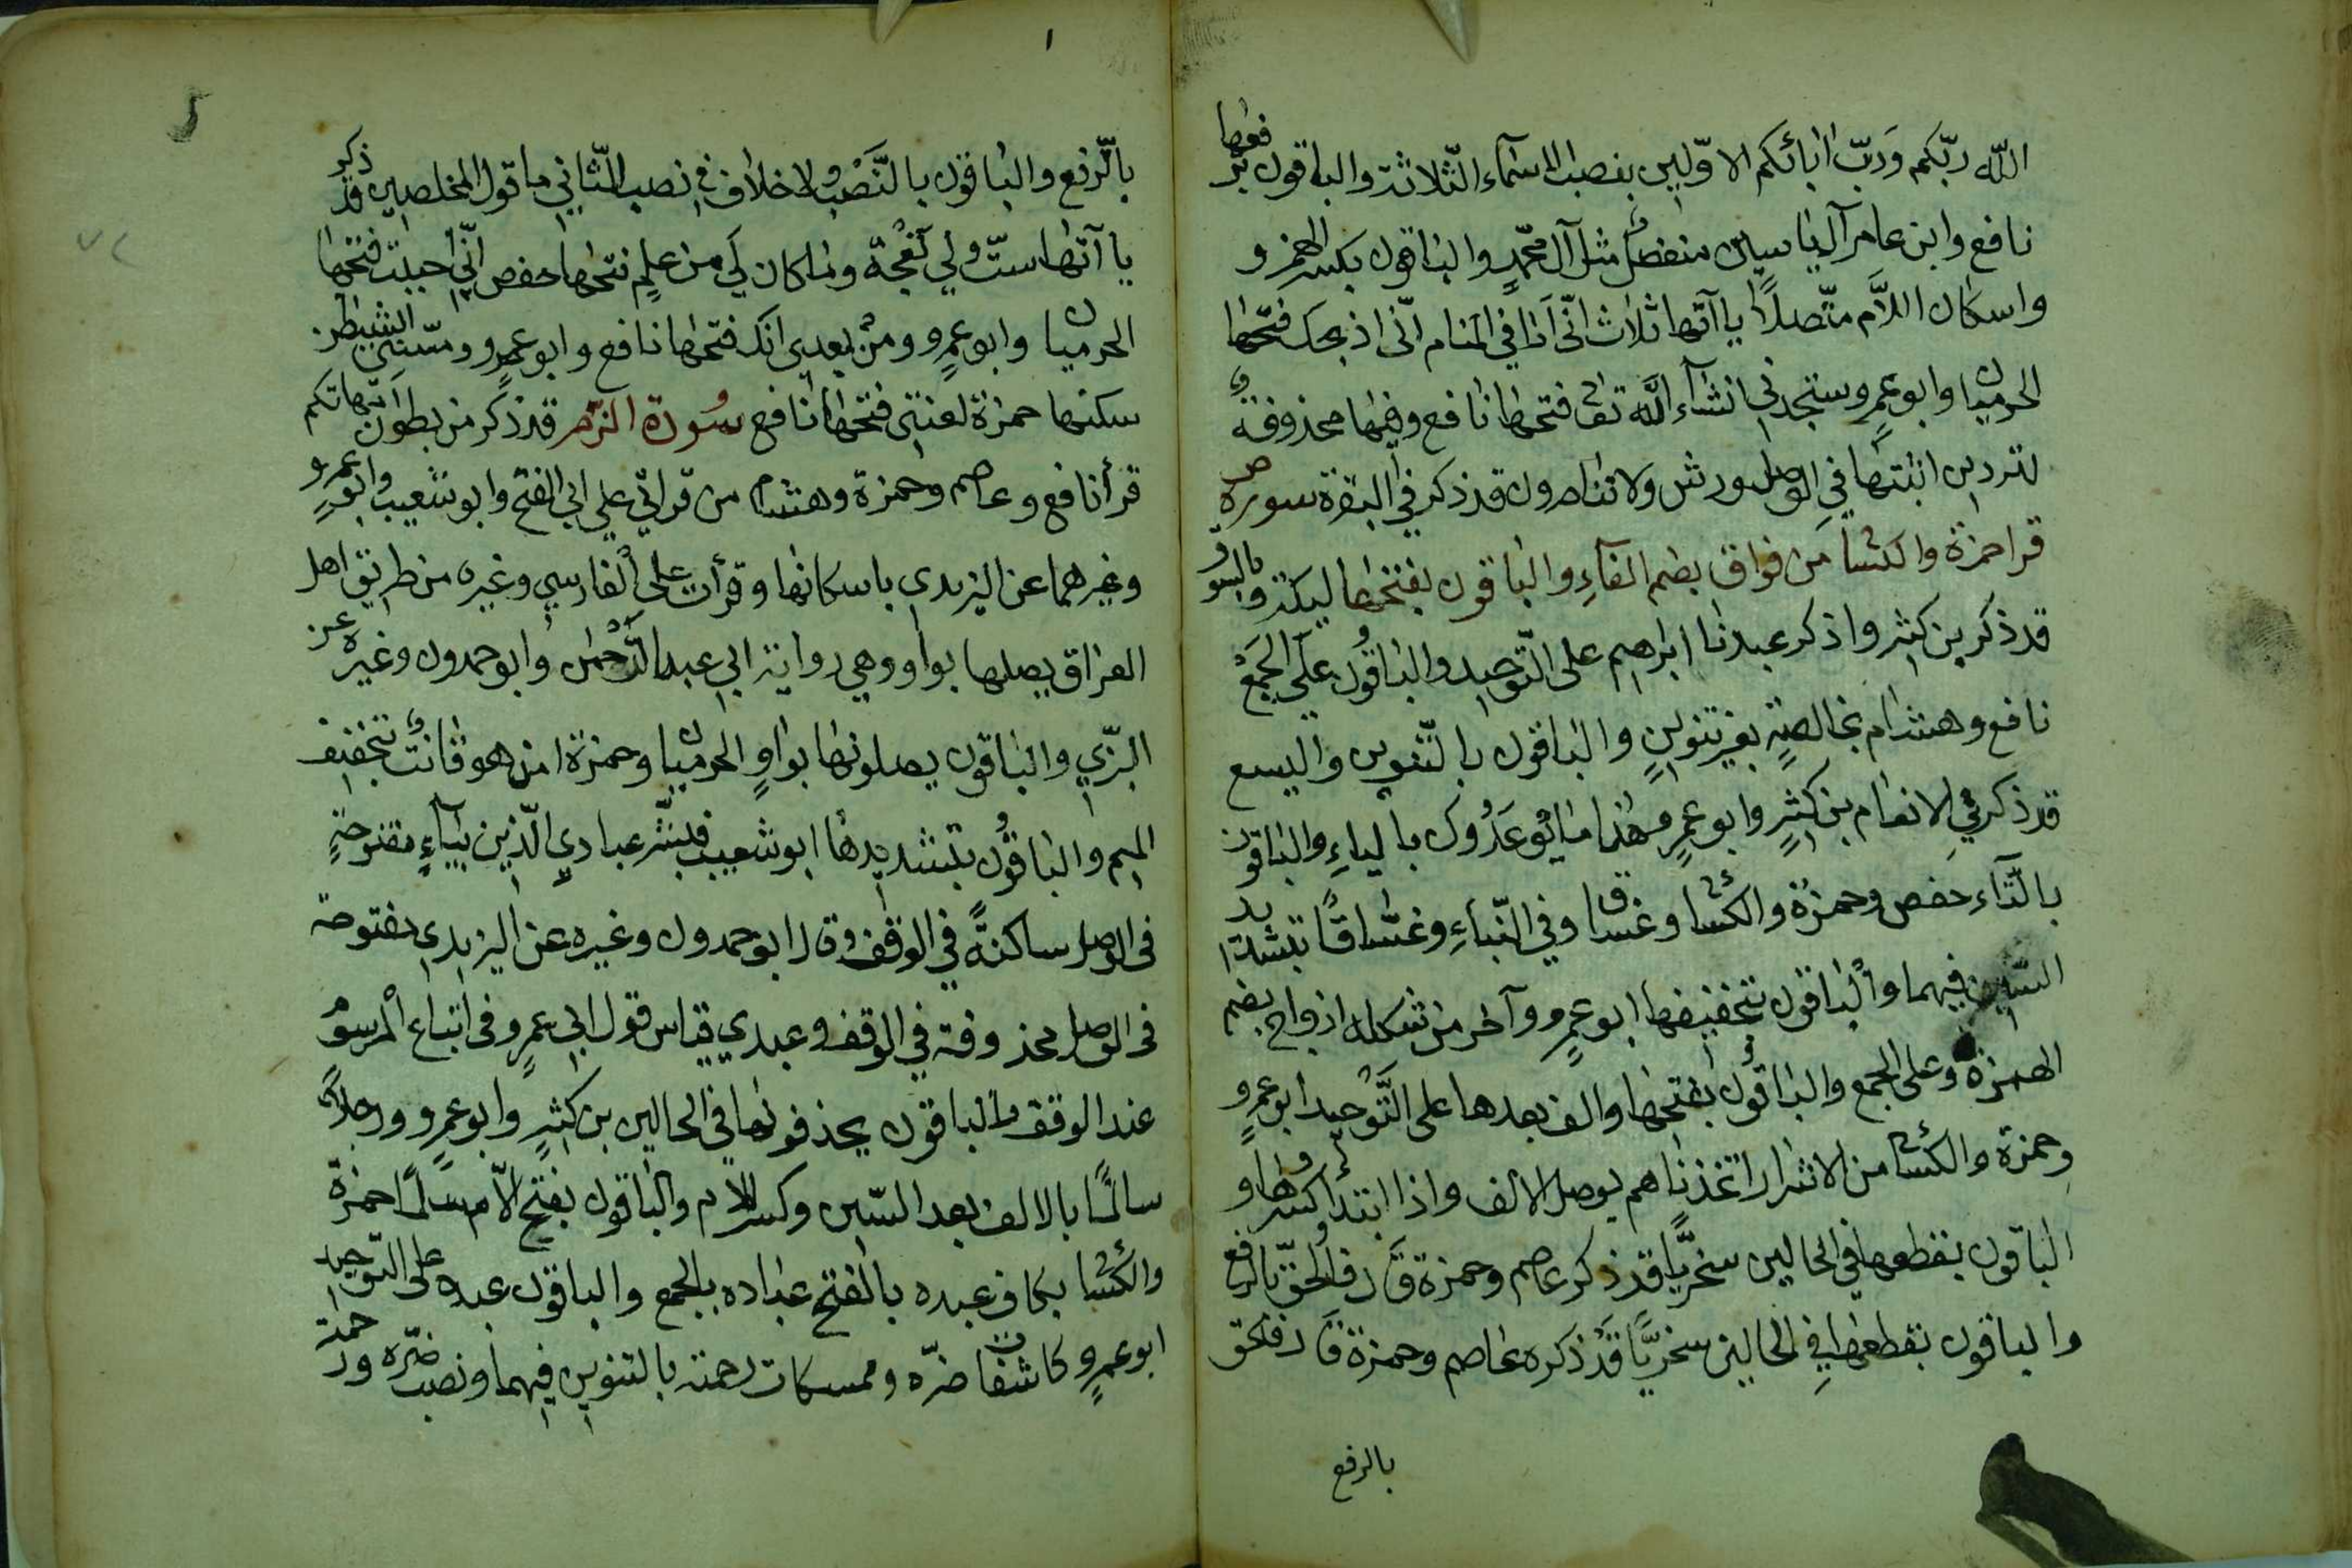 الله ربّكم وَربّ اٰبائكم الاوّلين بنصب الاسمآء الثّلاثة والباقون برفعها
نافع وابن عامر آل ياسين منفصلًا مثل آل محمّدٍ والباقون بكسر الهمزه و
واسكان اللاَّم متّصلاً يا آتها ثلاث انّى اَرٰا في المنام انّى اذبحك فتحها
الحرميان وابو عمرٍو ستجدني انشآء اللّٰه تعٰ فتحها نافع وفيها محذوفة
لتردين اثبتها في الوصل ورش ولا تناصرون قد ذكر في البقرة سورة ص
قرا حمزة والكسائى من فواق بضم الفآءِ والباقون بفتحها ليكة وبالسوق
قد ذكر بن كثير واذكر عبدنا ابراهيم على التّوحيد والباقون على الجمع
نافع وهشام بخالصةٍ بغير تنوينٍ والباقون بالتّنوين واليسع
قد ذكر في الانعام بن كثيرٍ وابو عمرٍو هٰذا ما يُوعَدُون بالياءِ والباقون
بالتّاءِ حفص وحمزة والكسائى وغساق وفي النّباءِ وغسّاقًا بتشديد
السّين فيهما والباقون بتخفيفها ابو عمرٍو وآخر من شكله ازواج بضم
الهمزة وعلى الجمع والباقون بفتحها والف بعدها على التَّوحيد ابو عمرو
وحمزة والكسائى من الاشرار اتخذناهم بوصل الالف واذا ابتدأ كسرها و
الباقون بقطعها في الحالين سخريًّا قد ذكر عاصم وحمزة قال فالحقّ بالرفع
والباقون بقطعها فِي الحالين سخريًّا قد ذكره عاصم وحمزة قال فالحق
بالرفع
بالرّفع والباقون بالنَّصْب ولا خلاف في نصب الثّاني ما قول المخلصين قد ذكر
يا آتها ستّ ولي نَعْجة وما كان لِي من علمٍ فتحها حفص انّي احببت فتحها
الحرميان وابو عمرٍو ومن بعدى انك فتحها نافع وابو عمرٍو ومسّنى الشيطٰن
سكنها حمزة لعنتى فتحها نافع سورة الزّمر قد ذكر من بطون امّهاتكم
قرأ نافع وعاصم وحمزة وهشام من قرائي علي ابي الفتح وابو شعيب وابو عمرٍو
وغيرهما عن اليزيدى باسكانها وقرأت على الفارسي وغيره من طريق اهل
العراق يصلها بواو وهي رواية ابي عبد الرَّحمٰن وابو حمدون وغيره عن
البزّي والباقون يصلونها بواوٍ الحرميان وحمزة امن هو قانت بتخفيف
الميم والباقون بتشديدها ابو شعيب فبشّر عبادي الّذين بيآءٍ مفتوحةٍ
فى الوصل ساكنةً في الوقف وقال ابو حمدون وغيره عن اليزيدى مفتوحة
فى الوصل محذوفة في الوقف وعبدي قياس قول ابى عمرٍو فى اتباع المرسوم
عند الوقف والباقون يحذفونها في الحالين بن كثيرٍ وابو عمرٍو ورجلاً
سالمًا بالالف بعد السّين وكسر اللام والباقون بفتح الاّم سلمًا حمزة
والكسائى بكاف عبده بالفتح عباده بالجمع والباقون عبده على التّوحيد
ابو عمرٍو كاشفات ضرّه وممسكات رحمته بالتنوين فيهما ونصب ضرّه ورحمته